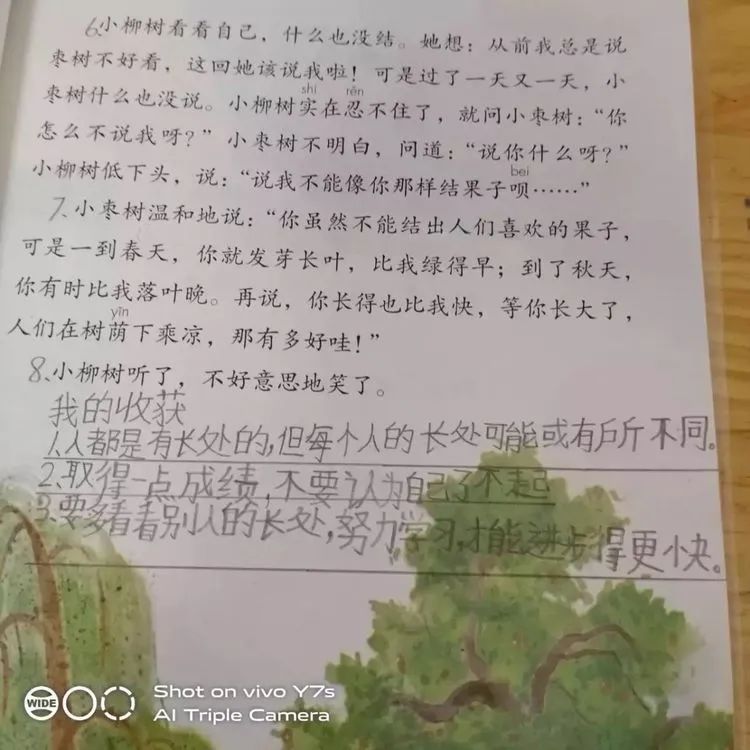 6.小柳树看看自己，什么也没结。她想：从前我总是说
枣树不好看，这回她该说我啦！可是过了一天又一天，小
shí rěn
枣树什么也没说。小柳树实在忍不住了，就问小枣树：“你
怎么不说我呀？”小枣树不明白，问道：“说你什么呀？”
bei
小柳树低下头，说：“说我不能像你那样结果子呗……”
7、小枣树温和地说：“你虽然不能结出人们喜欢的果子，
可是一到春天，你就发芽长叶，比我绿得早；到了秋天，
你有时比我落叶晚。再说，你长得也比我快，等你长大了，
yīn
人们在树荫下乘凉，那有多好哇！”
8、小柳树听了，不好意思地笑了。
我的收获
1.人都是有长处的,但每个人的长处可能或有所不同。
2.取得一点成绩,不要认为自己了不起
3.要多看看别人的长处,努力学习,才能进步得更快。
WIDE
Shot on vivo Y7s
AI Triple Camera